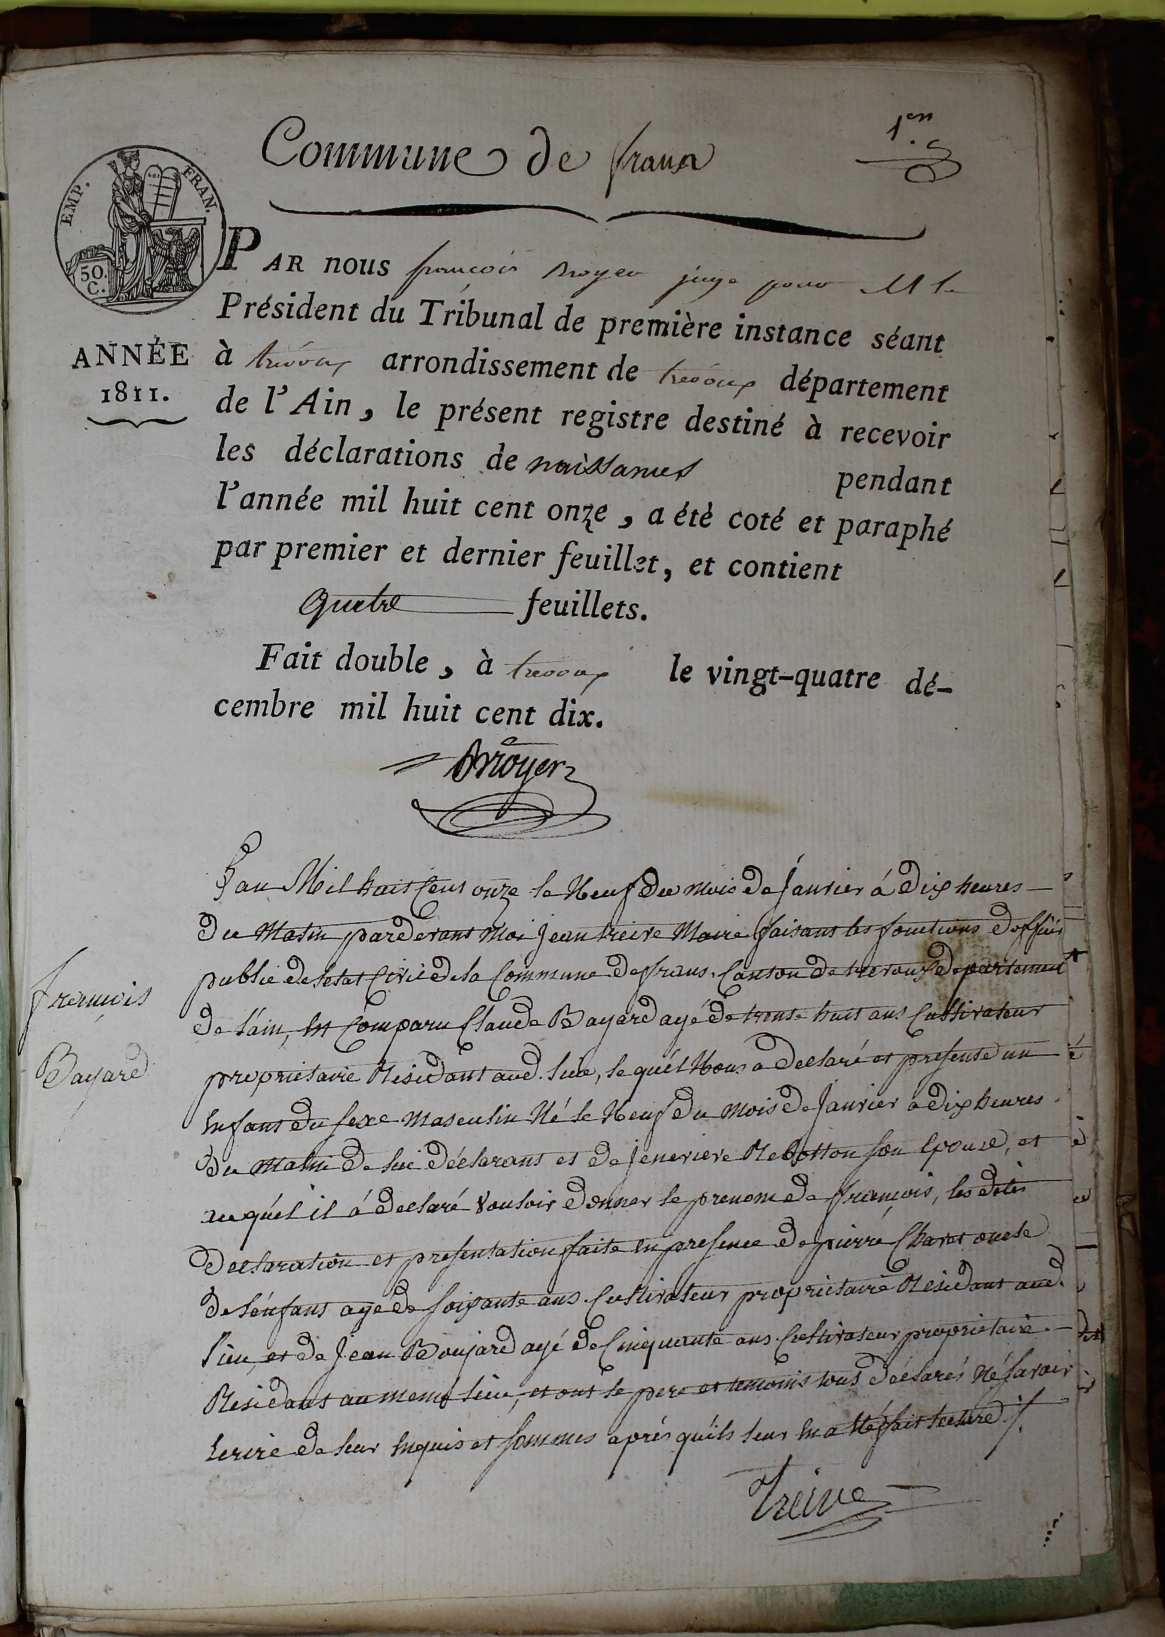 1.er
Commune de frans
EMP. FRAN.
50. C.
ANNÉE
1811.
PAR nous françois Broyer juge pour M le
Président du Tribunal de première instance séant
à trévoux arrondissement de trévoux département
de l'Ain, le présent registre destiné à recevoir
les déclarations de naissances pendant
l'année mil huit cent onze, a été coté et paraphé
par premier et dernier feuillet, et contient
quatre feuillets.
Fait double, à trevoux le vingt-quatre dé-
cembre mil huit cent dix.
Broyer
françois
Bayard
L'an Mil huit Cent onze le Neuf du mois de Janvier à dix heures
du Matin pardevant Moi Jean treive Maire faisant les fonctions d'officier
public de l'etat Civil de la Commune de frans. Canton de trevoux departement
de l'ain, est Comparu Claude Bayard agé de trente huit ans Cultivateur
proprietaire Residant aud. lieu, lequel Nous a declaré et presenté un
Enfant du sexe masculin Né le Neuf du mois de Janvier à dix heures
du matin de lui déclarant et de Jenevieve Rebotton son Epouse, et
auquél il á declaré Vouloir donner le prenom de françois, les dites
declaration et presentation faite en presence de pierre Chavet oncle
de l'énfant agé de soixante ans Cultivateur proprietaire Residant aud.
lieu, et de Jean Boujard agé de Cinquante ans Cultivateur proprietaire
Residant au meme lieu, et ont le pere et temoins tous déclarés Ne savoir
Ecrire de leur Enquis et sommés aprés qu'ils leur En a été fait lecture ./.
Treive